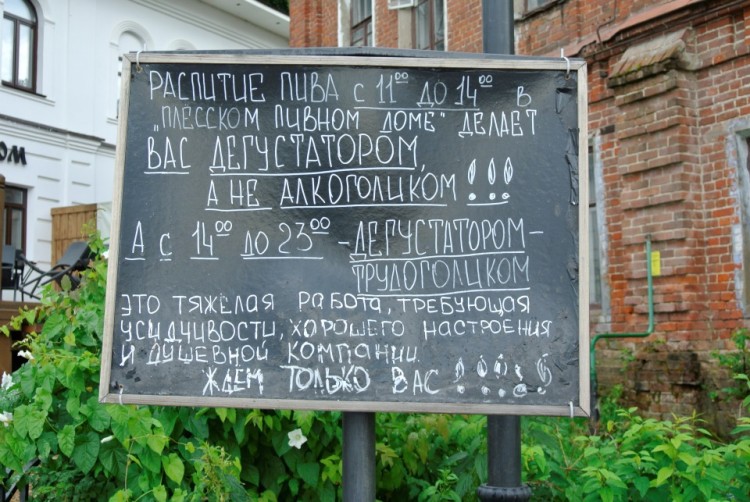 РАСПИТИЕ ПИВА С 11⁰⁰ ДО 14⁰⁰ В
"ПЛЕССКОМ ПИВНОМ ДОМЕ" ДЕЛАЕТ
ВАС ДЕГУСТАТОРОМ,
А НЕ АЛКОГОЛИКОМ!!!
А С 14⁰⁰ ДО 23⁰⁰ - ДЕГУСТАТОРОМ-
ТРУДОГОЛИКОМ
ЭТО ТЯЖЕЛАЯ РАБОТА, ТРЕБУЮЩАЯ
УСИДЧИВОСТИ, ХОРОШЕГО НАСТРОЕНИЯ
И ДУШЕВНОЙ КОМПАНИИ.
ЖДЕМ ТОЛЬКО ВАС !!!!!